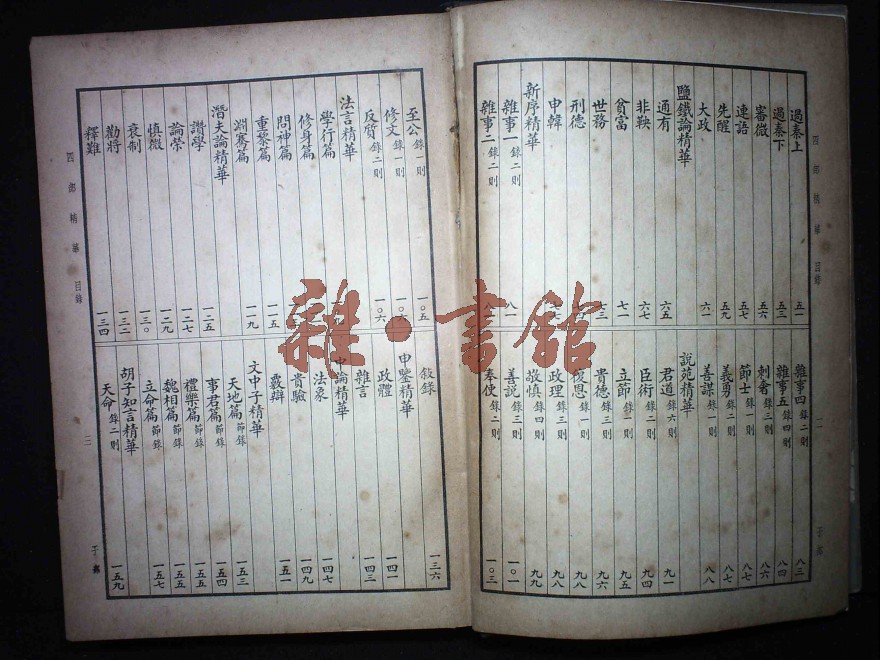 四部精華 目錄
二
子部
過秦上 五一
過秦下 五三
審微 五六
連語 五七
先醒 五九
大政 六一
鹽鐵論精華
通有 六五
非鞅 六七
貧富 七一
世務
刑德
申韓
新序精華
雜事一 錄二則 八一
雜事二 錄二則
雜事四 錄二則 八三
雜事五 錄四則 八四
刺奢 錄三則 八六
節士 錄一則 八七
義勇 錄二則 八七
善謀 錄一則 八八
說苑精華
君道 錄六則 九一
臣術 錄二則 九四
立節 錄二則 九五
貴德 錄三則 九六
復恩 錄一則 九八
政理 錄三則 九八
敬慎 錄四則 九九
善說 錄三則 一〇一
奉使 錄二則 一〇三
至公 錄一則 一〇五
修文 錄一則 一〇六
反質 錄二則 一〇六
法言精華
學行篇
修身篇
問神篇
重黎篇 一一五
淵騫篇 一一九
潛夫論精華
讚學 一二五
論榮 一二七
慎微 一二九
衰制 一三〇
勸將 一三二
釋難 一三四
敍錄 一三六
申鑒精華
政體 一四一
雜言 一四三
中論精華
法象 一四七
貴驗 一四九
覈辯 一五一
文中子精華
天地篇 節錄 一五三
事君篇 節錄 一五四
禮樂篇 節錄 一五五
魏相篇 節錄 一五五
立命篇 節錄 一五七
胡子知言精華
天命 錄二則 一五九
四部精華 目錄
三
子部
雜·書館